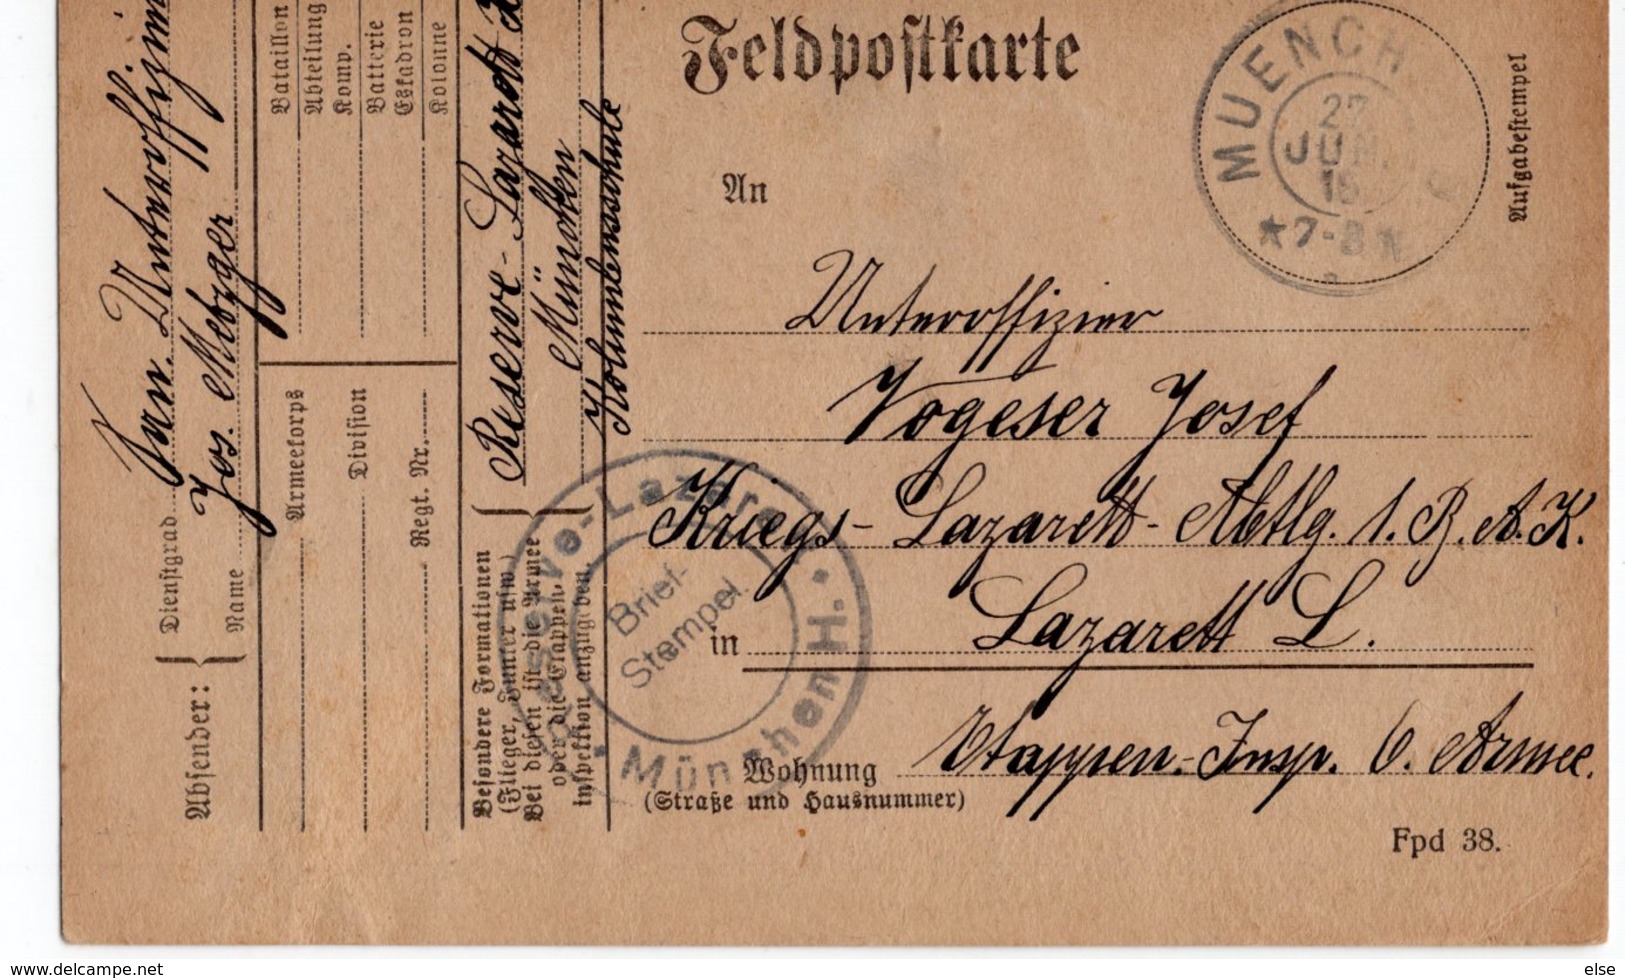 Feldpostkarte
MUENCH
27
JUN.
15
★7-8
Aufgabestempel
An
Unteroffizier
Vogeser Josef
Kriegs-Lazarett-Abtlg. 1. B. A. K.
in Lazarett L.
Wohnung Etappen-Insp. 6. Armee.
(Straße und Hausnummer)
Fpd 38.
Absender:
Dienstgrad San. Unteroffizier
Name Jos. Metzger
Bataillon
Abteilung
Komp.
Batterie
Eskadron
Kolonne
Armeekorps
Division
Regt. Nr.
Besondere Formationen
(Flieger, Funker usw.)
Bei diesen ist die Armee
oder die Etappen-
inspektion anzugeben.
Reserve-Lazarett
München
Reserve-Lazarett München H.
Brief-
Stempel.
www.delcampe.net
else